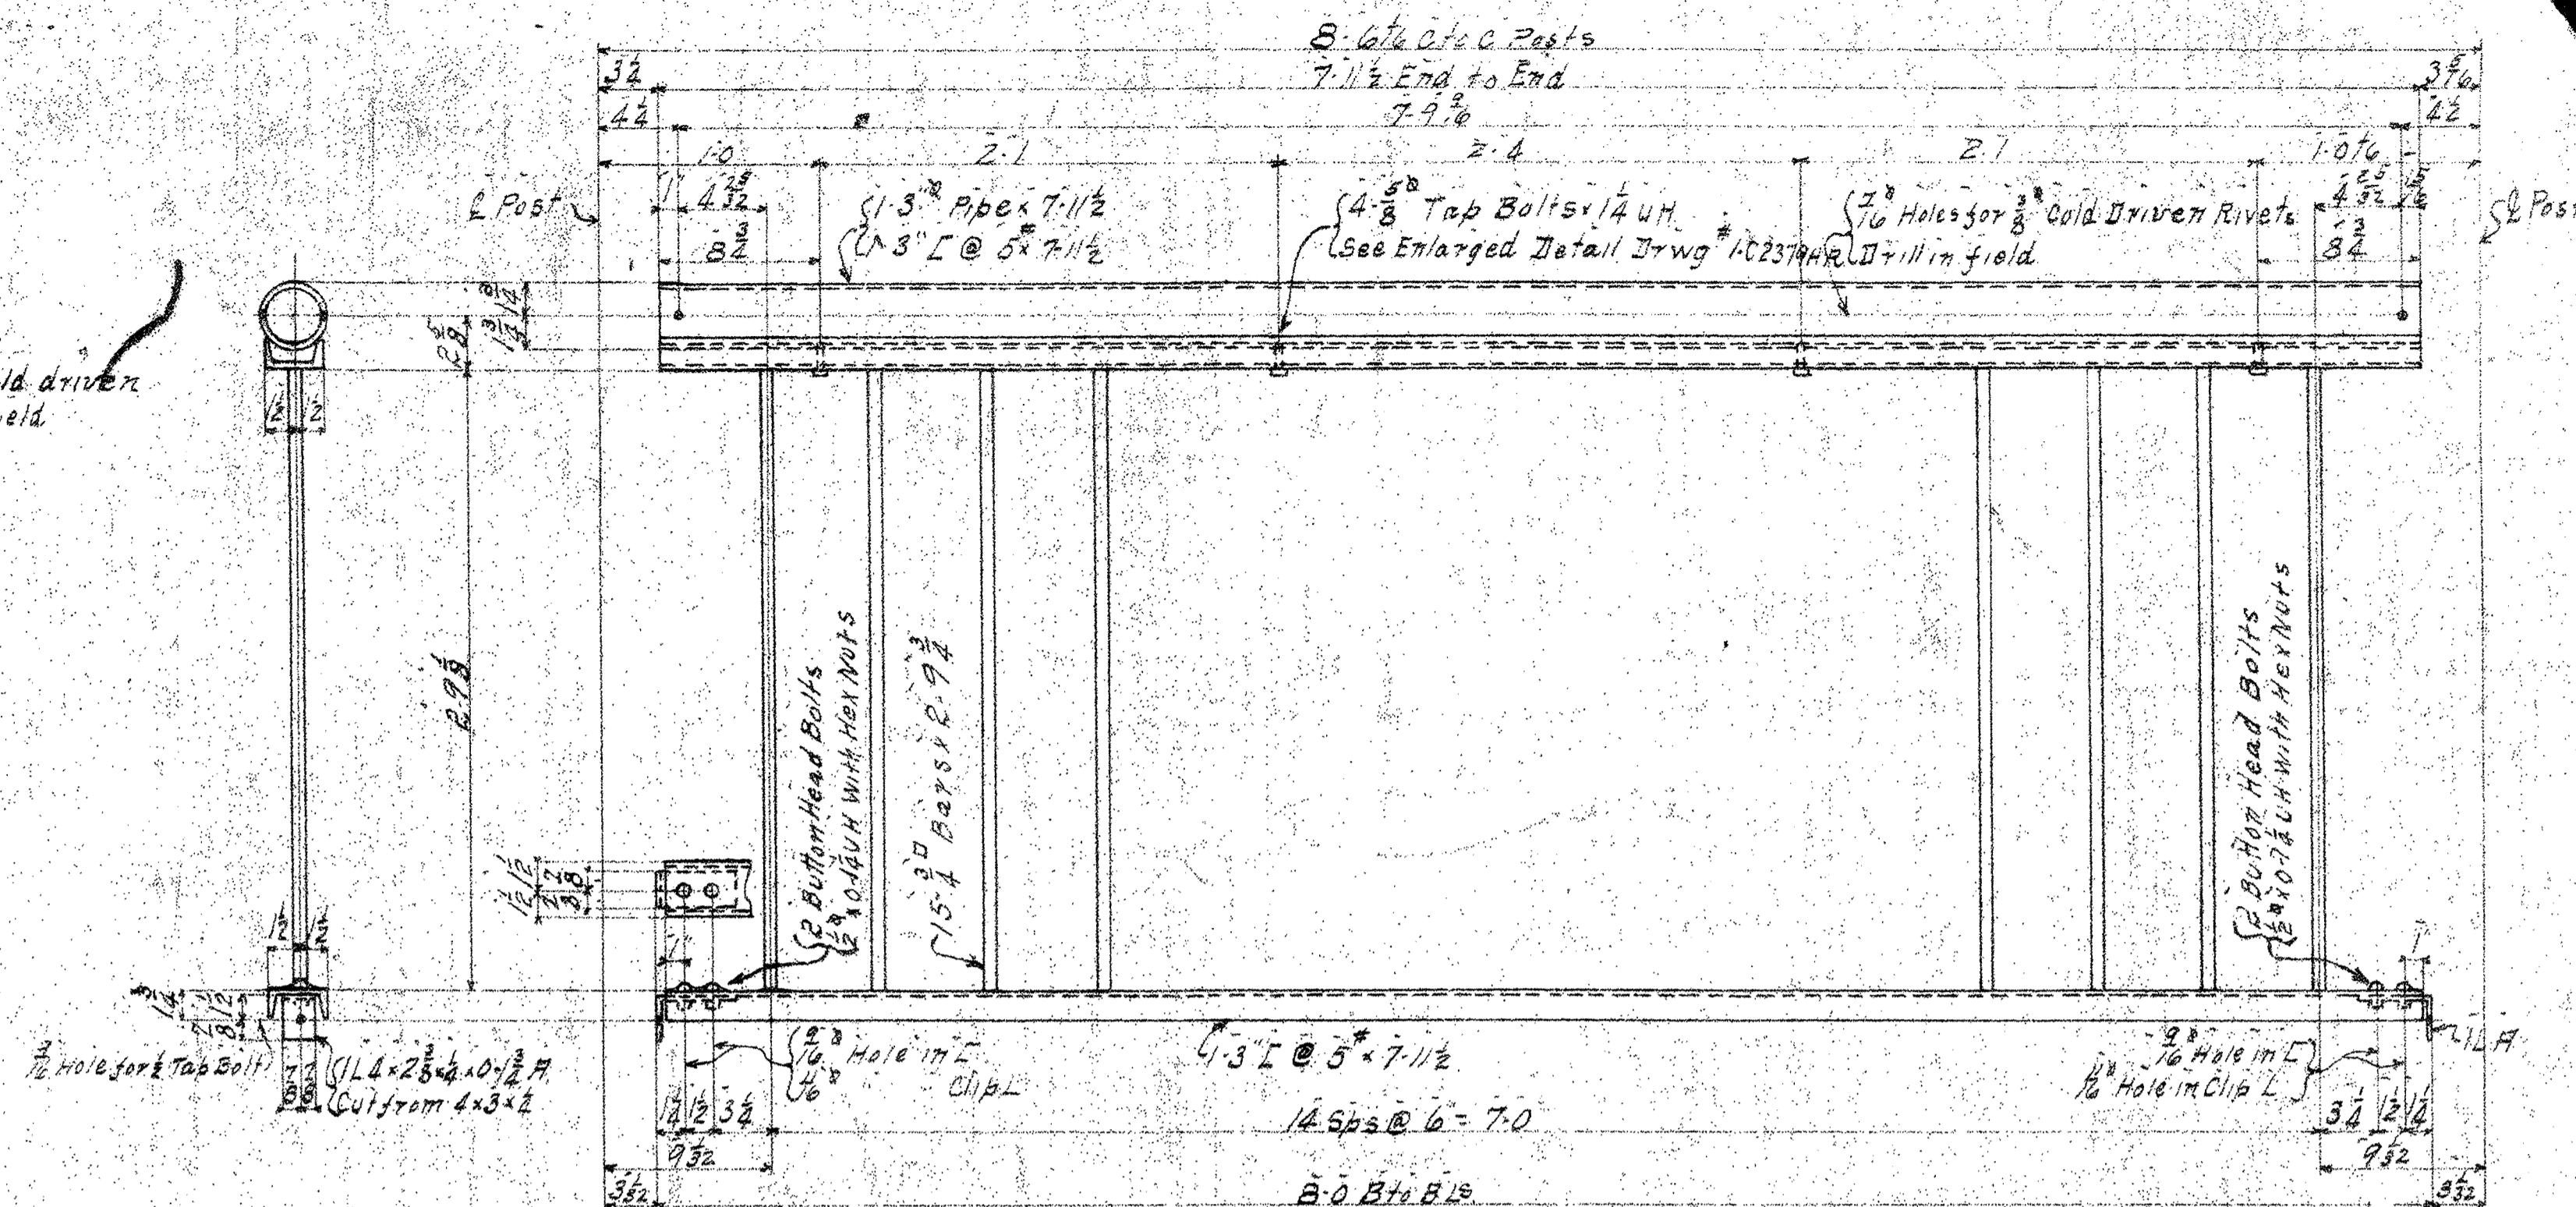 8-6 1/16 C to C Posts
3 1/4
7-11 1/2 End to End
3 5/16
4 1/4
7-9 9/16
4 1/2
1-0
2-1
2-4
2-1
1-0 1/16
1"
4 25/32
4 25/32
15/16
℄ Post
1-3"ø Pipe x 7-11 1/2
1-3" [ @ 5# x 7-11 1/2
4-5/8ø Tap Bolts x 1 1/4 UH
See Enlarged Detail Drwg #1-C2379AR
7/16ø Holes for 3/8ø Cold Driven Rivets
Drill in field
℄ Post
8 3/4
8 3/4
2 5/8
1 3/4
ld driven
eld
1 1/2
1 1/2
2-9 1/8
2 Button Head Bolts
1/2ø x 0-1 1/4 UH With Hex Nuts
15-3/4□ Bars x 2-9 3/4
2 Button Head Bolts
With Hex Nuts
1 1/2
1 1/2
7/8
7/8
1 1/2
1 1/2
1"
1"
1 3/4
7/8
1/2
Hole for 1/2 Tap Bolt
7/8
7/8
Cut from 4 x 3 x 1/4
9/16ø Hole in [
Clip L
1-3" [ @ 5# x 7-11 1/2
9/16ø Hole in [
Hole in Clip L
1L A
1 1/4
1 1/2
3 1/4
14 Sps @ 6" = 7-0
3 1/4
1 1/2
1 1/4
9 1/32
9 1/32
3 1/32
8-0 B to B Ls
3 1/32